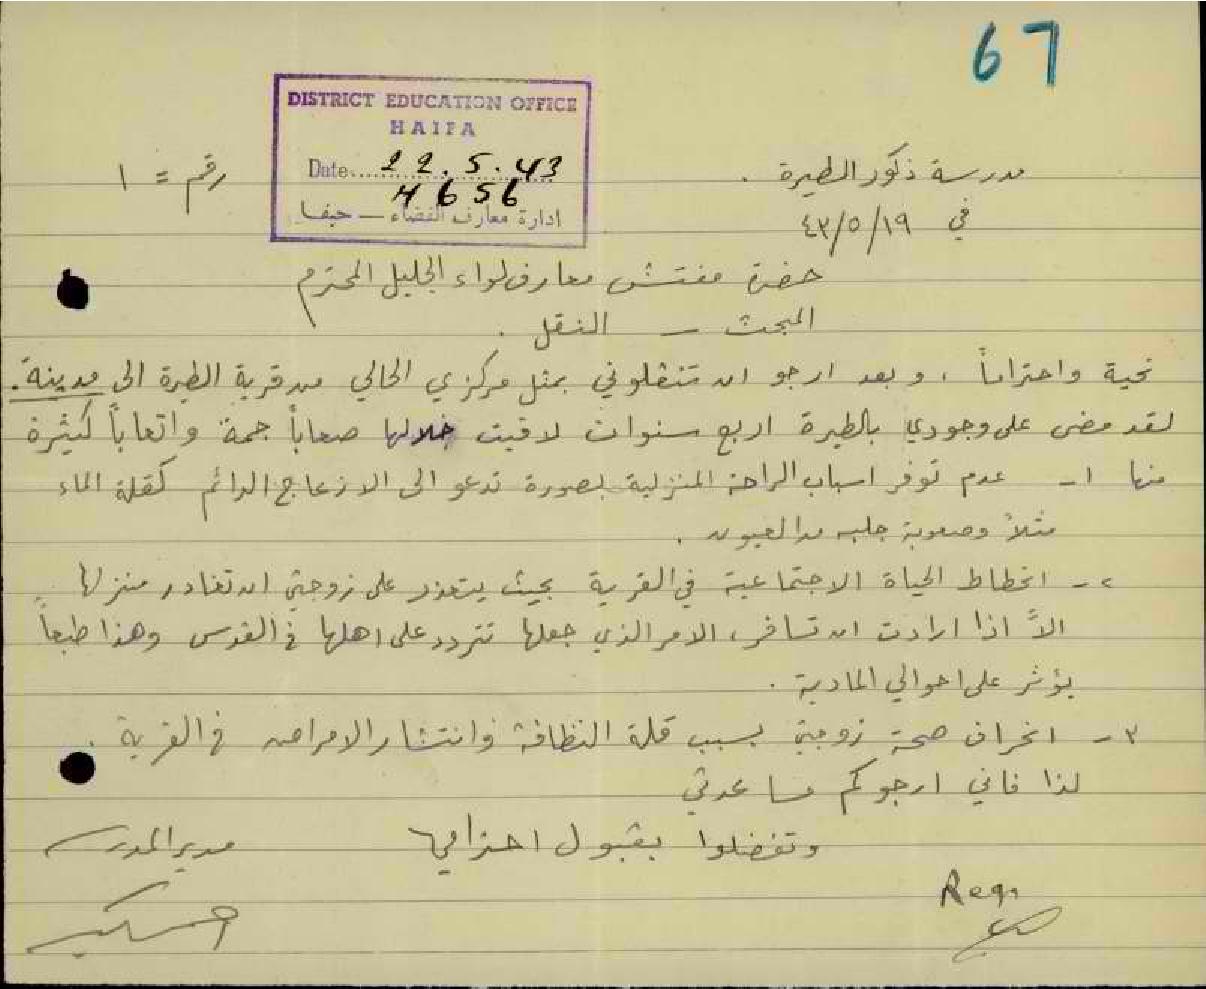 67
DISTRICT EDUCATION OFFICE
HAIFA
Date 22.5.43
4656
ادارة معارف القضاء — حيفا
مدرسة ذكور الطيرة . رقم = ١
في ٤٣/٥/١٩
حضرة مفتش معارف لواء الجليل المحترم
المبحث – النقل .
تحية واحتراماً ، وبعد ارجو ان تنقلوني بمثل مركزي الحالي من قرية الطيرة الى مدينة.
لقد مضى على وجودي بالطيرة اربع سنوات لاقيت خلالها صعاباً جمة واتعاباً كثيرة
منها ١- عدم توفر اسباب الراحة المنزلية بصورة تدعو الى الازعاج الدائم كقلة الماء
مثلاً وصعوبة جلبه من العيون .
٢- انحطاط الحياة الاجتماعية في القرية بحيث يتعذر على زوجتي ان تغادر منزلها
الاّ اذا ارادت ان تسافر، الامر الذي جعلها تتردد على اهلها في القدس وهذا طبعاً
يؤثر على احوالي المادية .
٣- انحراف صحة زوجتي بسبب قلة النظافة وانتشار الامراض في القرية .
لذا فاني ارجوكم مساعدتي
وتفضلوا بقبول احترامي مدير المدرسة